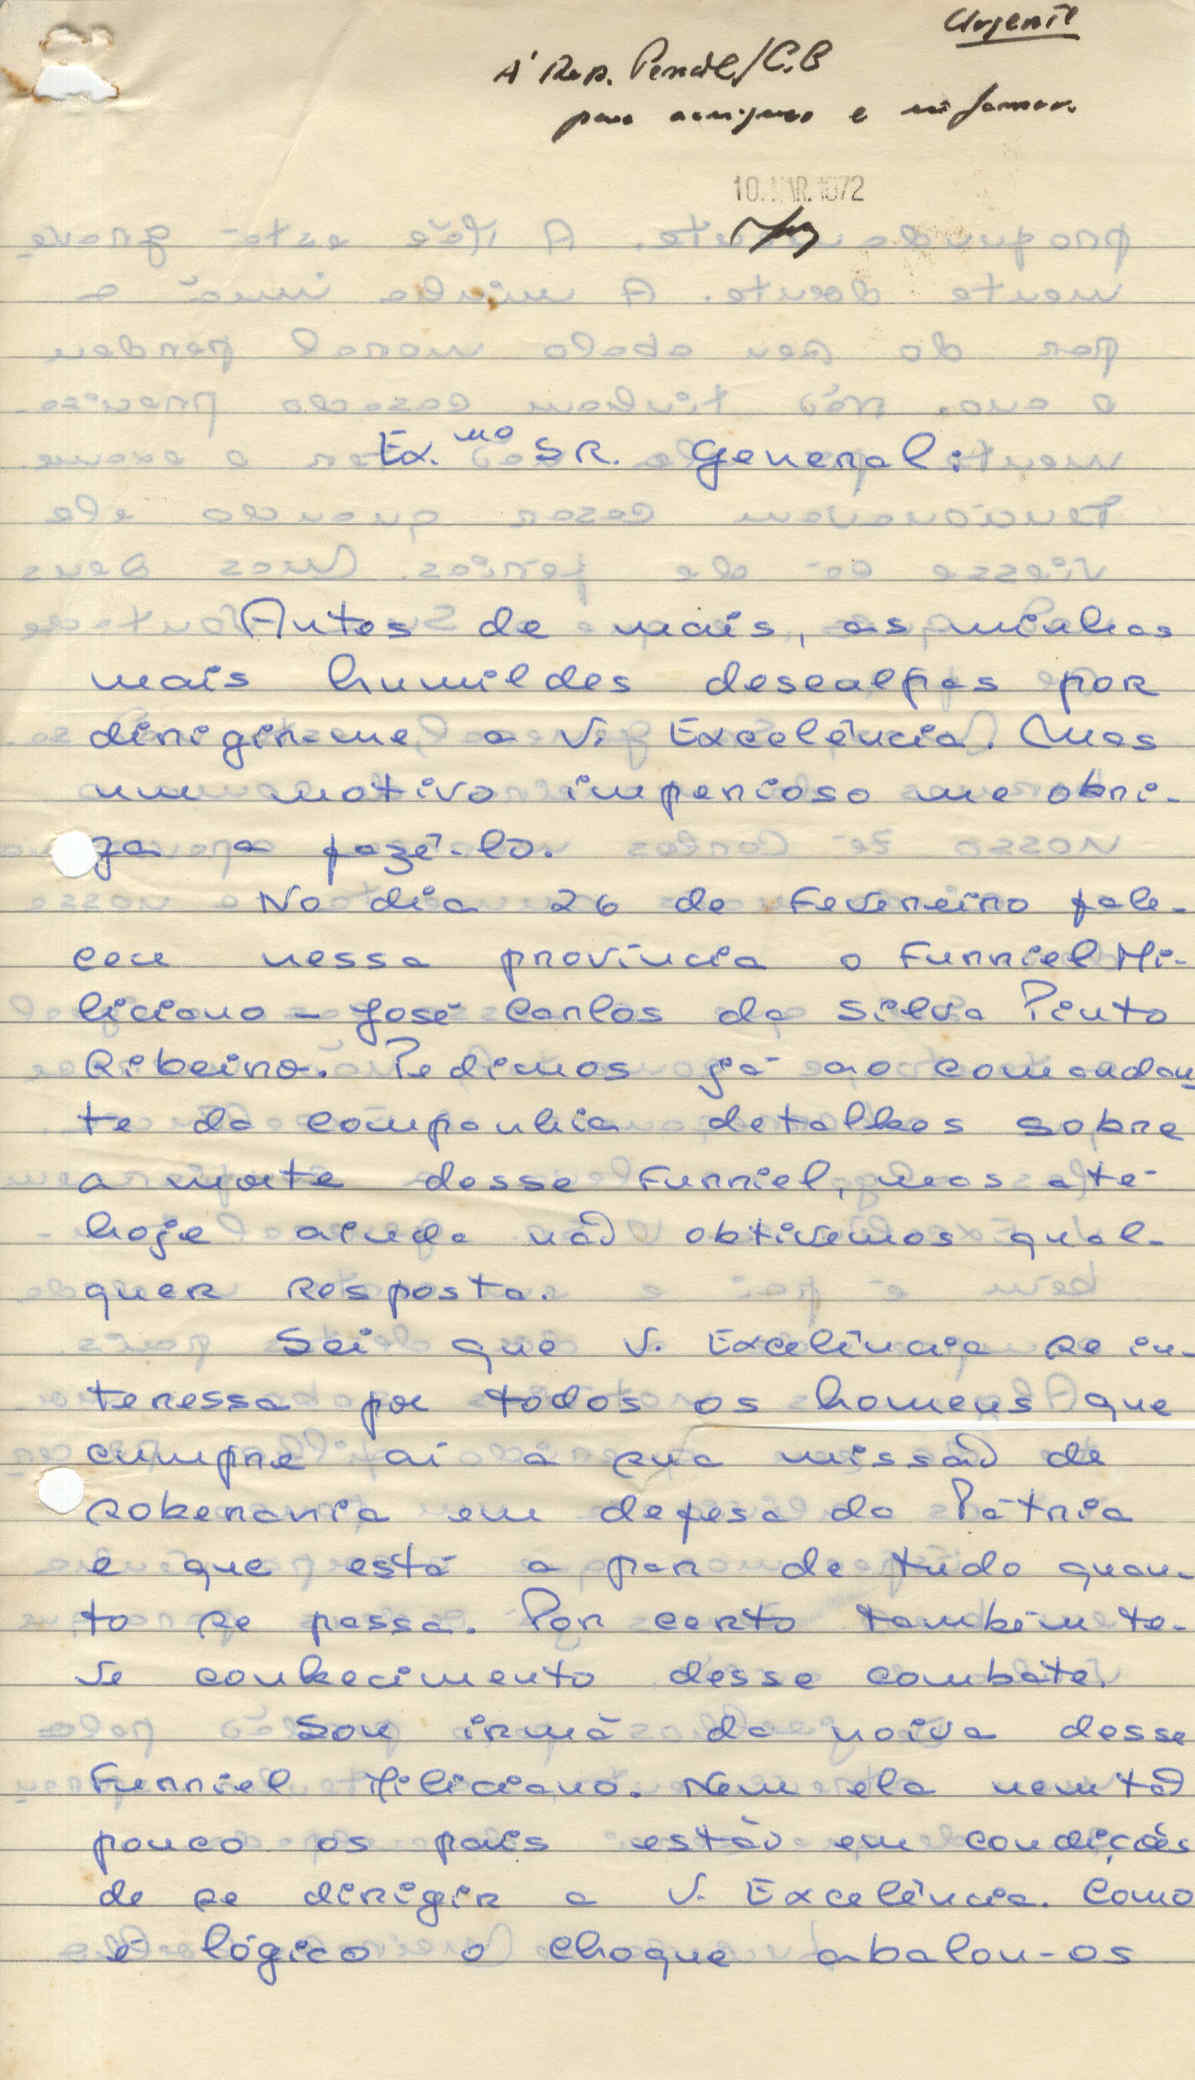 Urgente
À Rep. Pessoal/C.B
para averiguar e informar.
10. MAR. 1972
Ex.mo SR. General:
Antes de mais, as minhas
mais humildes desculpas por
dirigir-me a V. Excelência. Mas
um motivo imperioso me obri-
ga a fazê-lo.
No dia 26 de Fevereiro fale-
ceu nessa província o Furriel Mi-
liciano - José Carlos da Silva Pinto
Ribeiro. Pedimos já ao comandan
te da companhia detalhes sobre
a morte desse Furriel, mas até
hoje ainda não obtivemos qual-
quer resposta.
Sei que V. Excelência se in-
teressa por todos os homens que
cumpre aí a sua missão de
soberania em defesa da Pátria
e que está a par de tudo quan-
to se passa. Por certo também te-
ve conhecimento desse combate.
Sou irmã da noiva desse
Furriel Miliciano. Nem ela nem tão
pouco os pais estão em condições
de se dirigir a V. Excelência. Como
é lógico o choque abalou-os